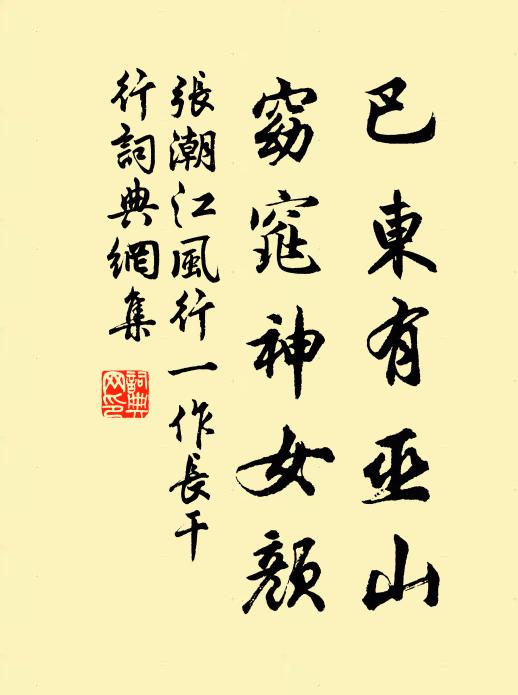 巴東有巫山
窈窕神女顏
張潮江風行一作長干
行詞典網集
詞典
网印